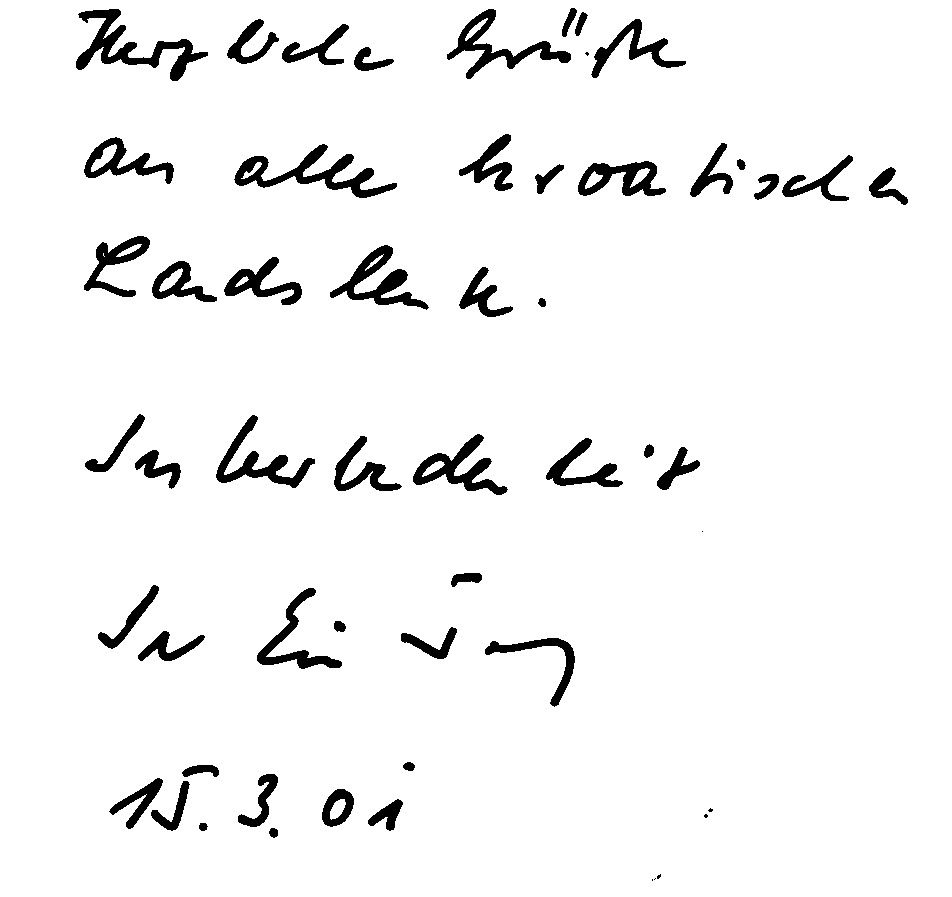 Herzliche Grüße
an alle kroatischen
Landsleute.
In Verbundenheit
Ihr
15.3.01